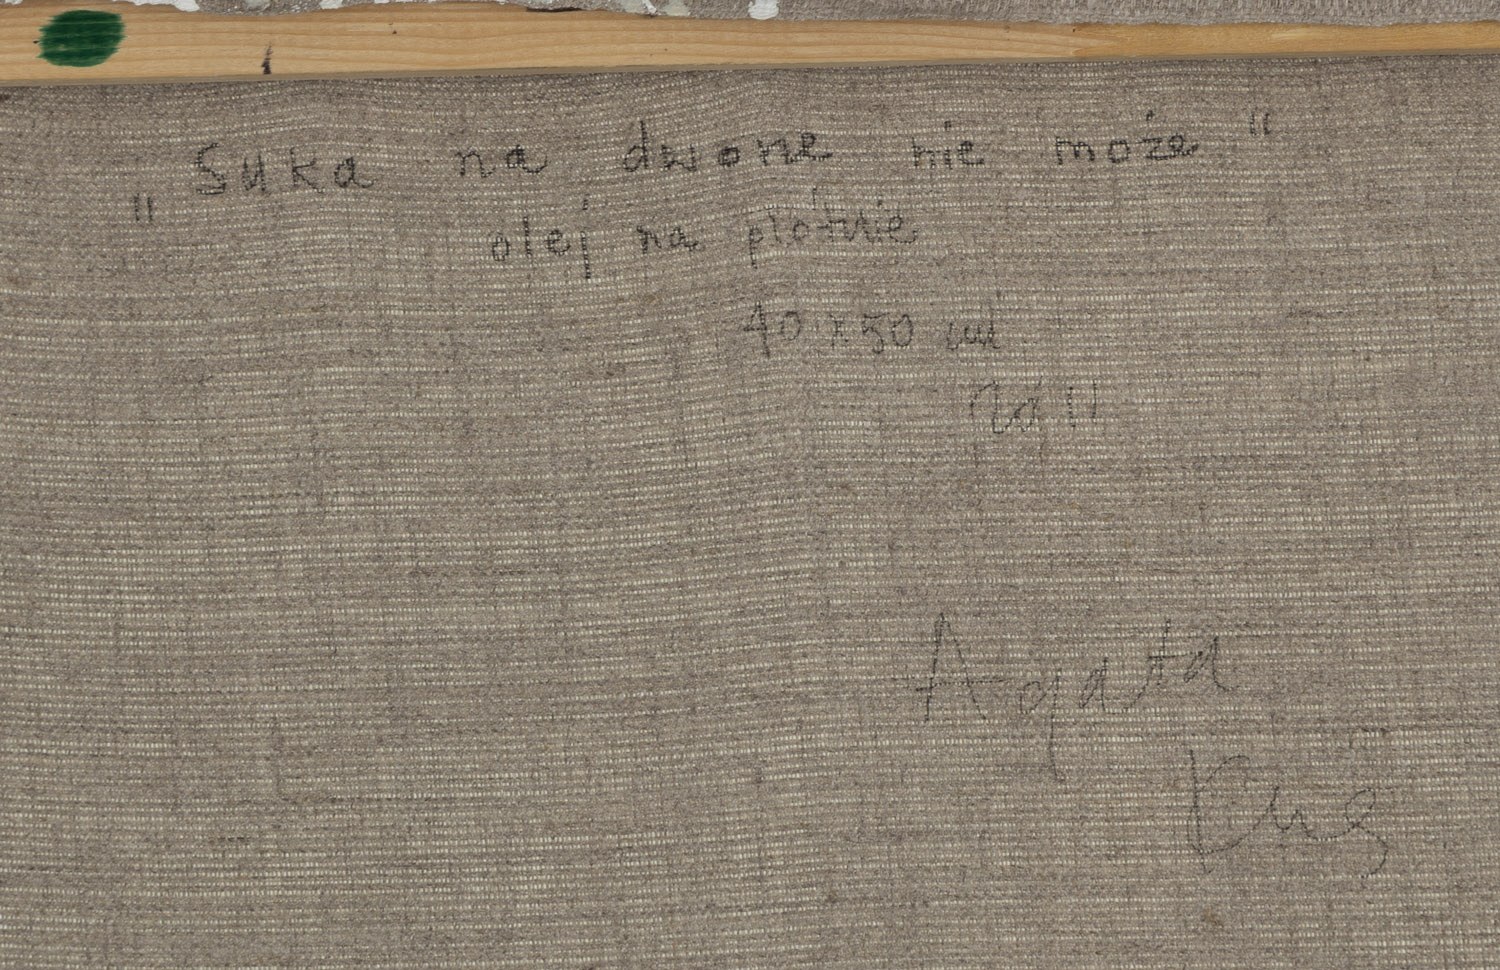 „Suka na dworze nie może"
olej na płótnie
40x50 cm
2011
Agata
Kus